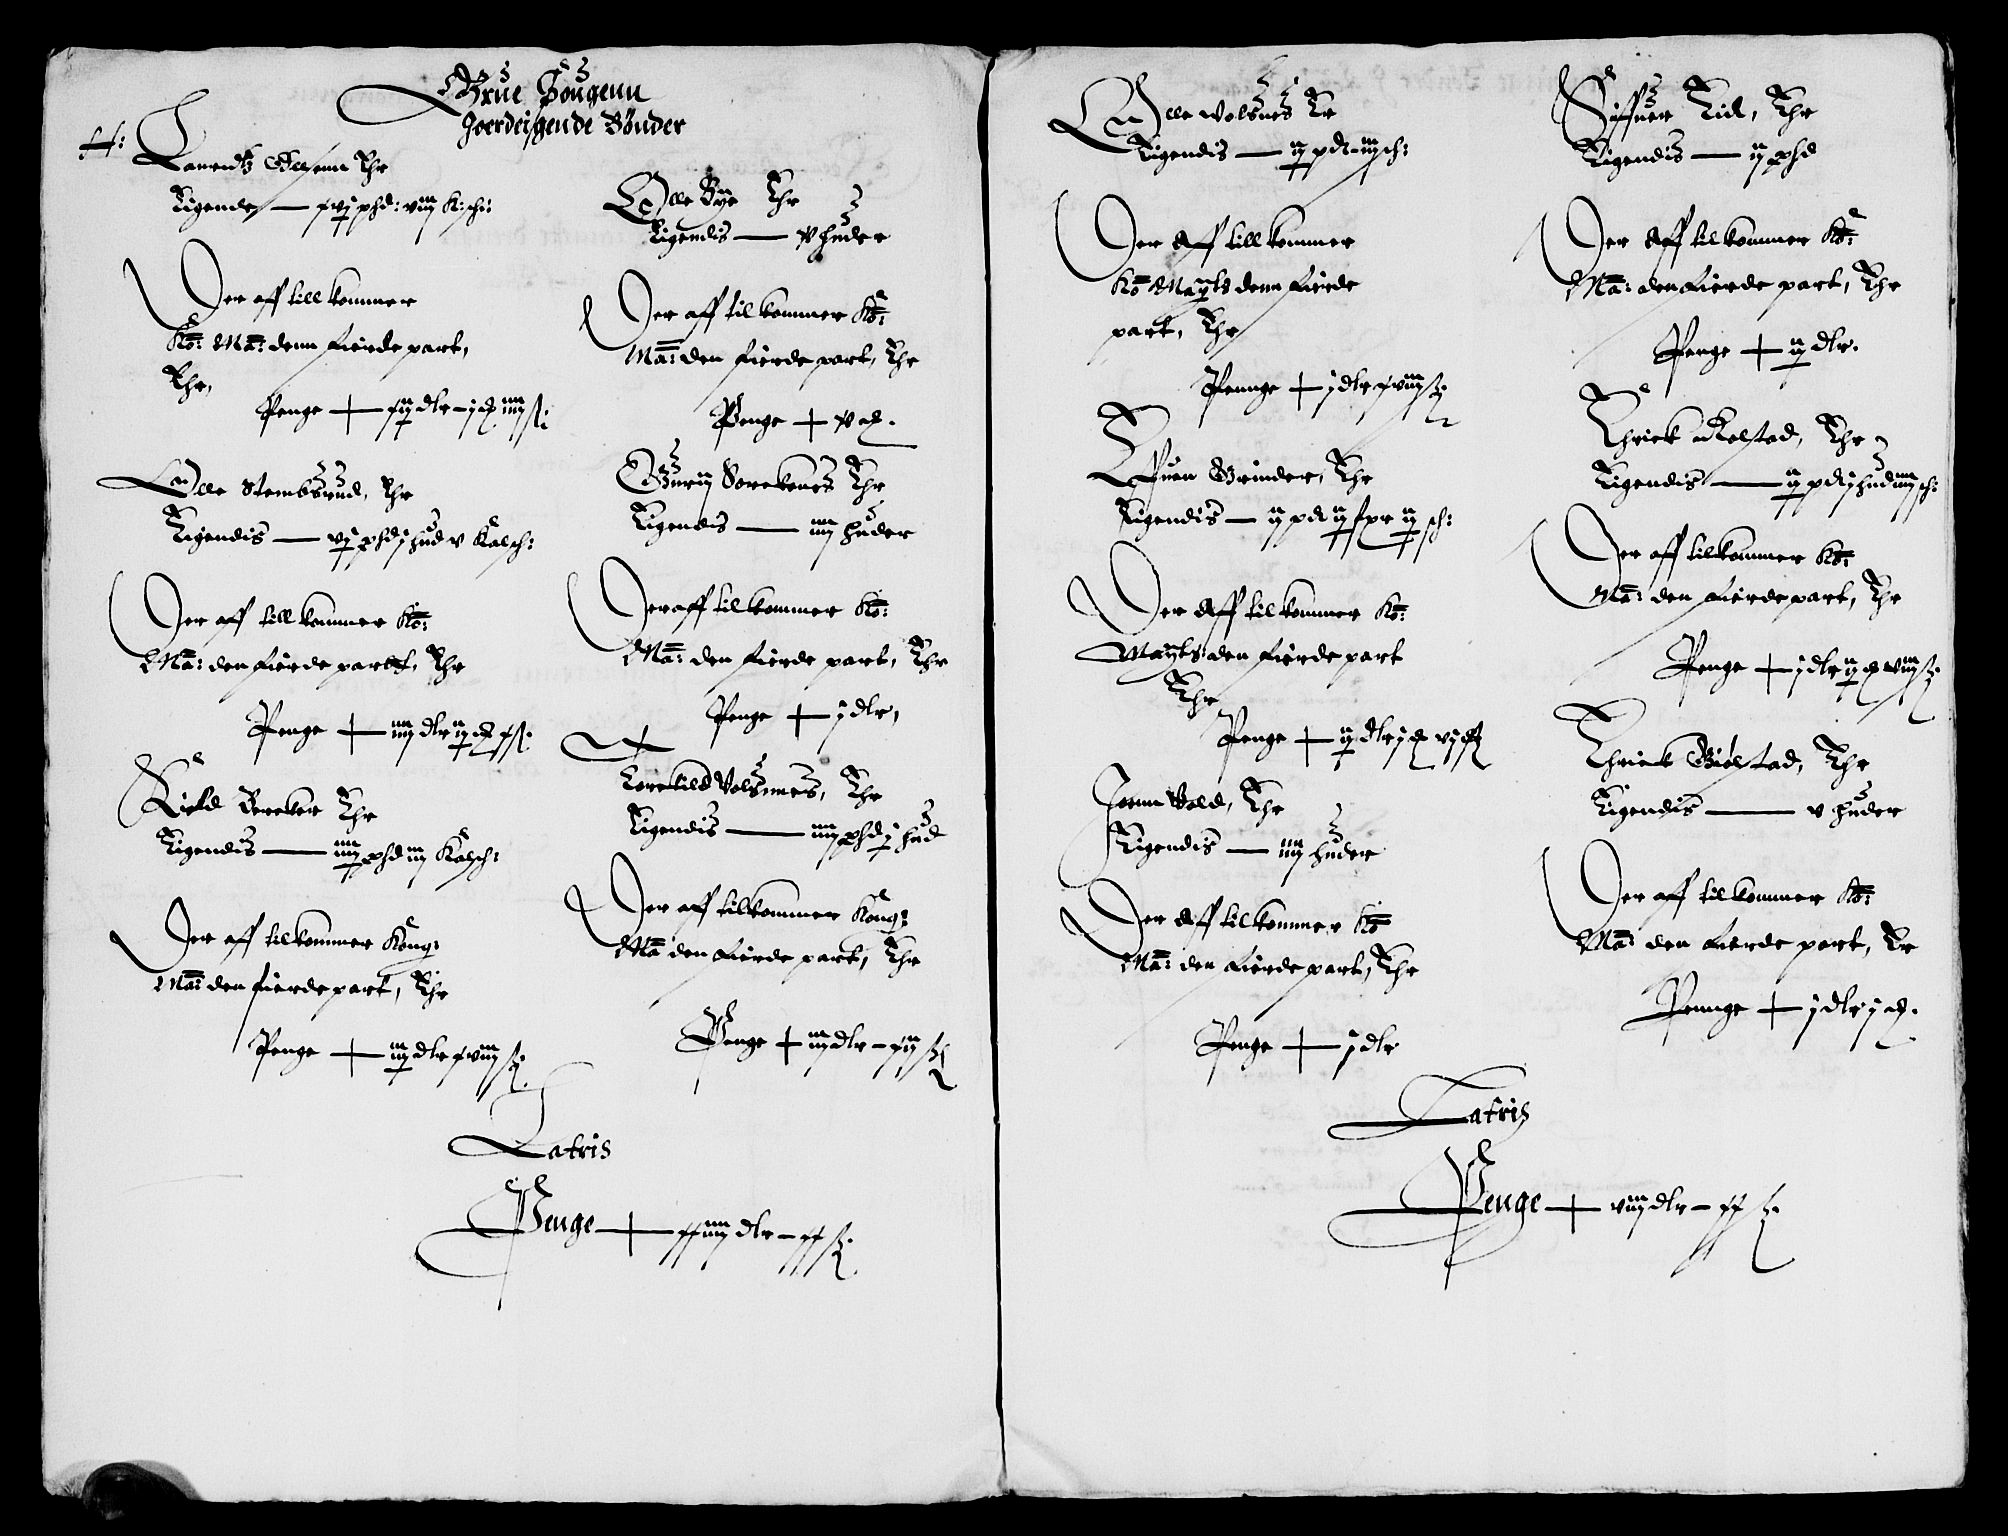 Grue Sougenn
Joerdeigende Bønder
H:
Lauridtz Ollsenn Ehr
Eigende — xvj phd: viij K:sch:
Der aff till kommer
Ko: Ma: denn fierde part,
Ehr,
Penge — xij dlr - j  iiij ß:
Olle Stembsrud, Ehr
Eigendis — vj phd j hud v Kalsch:
Der aff till kommer Ko:
Ma: den fierde partt, Ehr
Penge — iiij dlr ij  x ß.
Kield Bereker Ehr
Eigendis — iiij phd iij Kalsch:
Der aff tilkommer Kong:
Ma: den fierde part, Ehr
Penge — iij dlr xviij ß.
Olle Bye Ehr
Eigendis — v huder
Der aff til kommer Ko:
Ma: den fierde part, Ehr
Penge — v .
Gurij Sorekenes Ehr
Eigendis — iiij huder
Der aff til kommer Ko:
Ma: den fierde part, Ehr
Penge — j dlr,
Torekild Volsnnes, Ehr
Eigendis — iiij phd j hud
Der aff tilkommer Kong:
Ma den fierde part, Ehr
Penge — iij dlr - xij ß
Latris
Penge — xxiiij dlr - xx ß.
Olle Volsnes Er
Eigendis — ij pd - iiij sch:
Der Aff till kommer
Ko Maytts denn fierde
part, Ehr
Pennge — j dlr xviij ß.
Effuen Grinder, Ehr
Eigendis — ij pd ij  ij sch:
Der Aff til kommer Ko:
Maytts den fierde part
Ehr
Penge — ij dlr j  vj ß
Jonn Vold, Ehr
Eigendis — iiij huder
Der Aff til kommer Ko
Ma: den fierde part, Ehr
Penge — j dlr
Siffuer Lid, Ehr
Eigendis — ij phd
Der Aff til kommer Ko:
Ma: den fierde part, Ehr
Penge — ij dlr.
Ehrick Kolstad, Ehr
Eigendis — ij pd j hud iiij sch:
Der aff til kommer Ko:
Ma: den fierde part, Ehr
Penge — j dlr ij  viij ß.
Ehrick Giolstad, Ehr
Eigendis — v huder
Der aff til kommer Ko:
Ma: den fierde part, Er
Pennge — j dlr j .
Latris
Penge — viij dlr - xx ß.